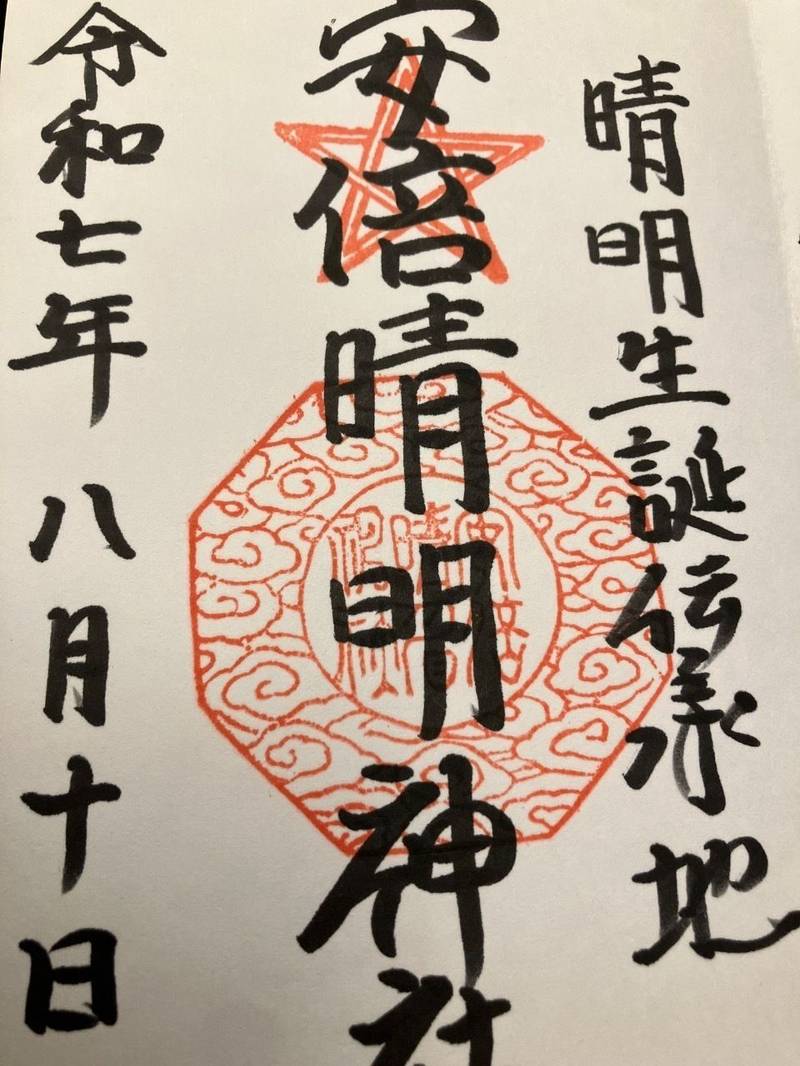 晴明生誕伝承地
安倍晴明神社
令和七年八月十日